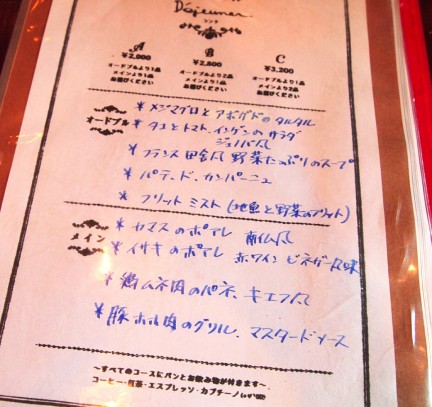 Déjeuner
ランチ
A
¥2,000
オードブルより1品
メインより1品
お選びください
B
¥2,800
オードブルより2品
メインより1品
お選びください
C
¥3,200
オードブルより1品
メインより2品
お選びください
オードブル
* メジマグロとアボガドのタルタル
* タコとトマト、インゲンのサラダ
ジェノバ風
* フランス田舎風 野菜たっぷりのスープ
* パテ、ド、カンパーニュ
* フリット ミスト (地魚と野菜のフリット)
メイン
* カマスのポアレ 南仏風
* イサキのポアレ 赤ワイン ビネガー風味
* 鶏ムネ肉のパネ、キエフ風
* 豚ホホ肉のグリル、マスタードソース
~すべてのコースにパンとお飲み物が付きます~
コーヒー・紅茶・エスプレッソ・カプチーノ